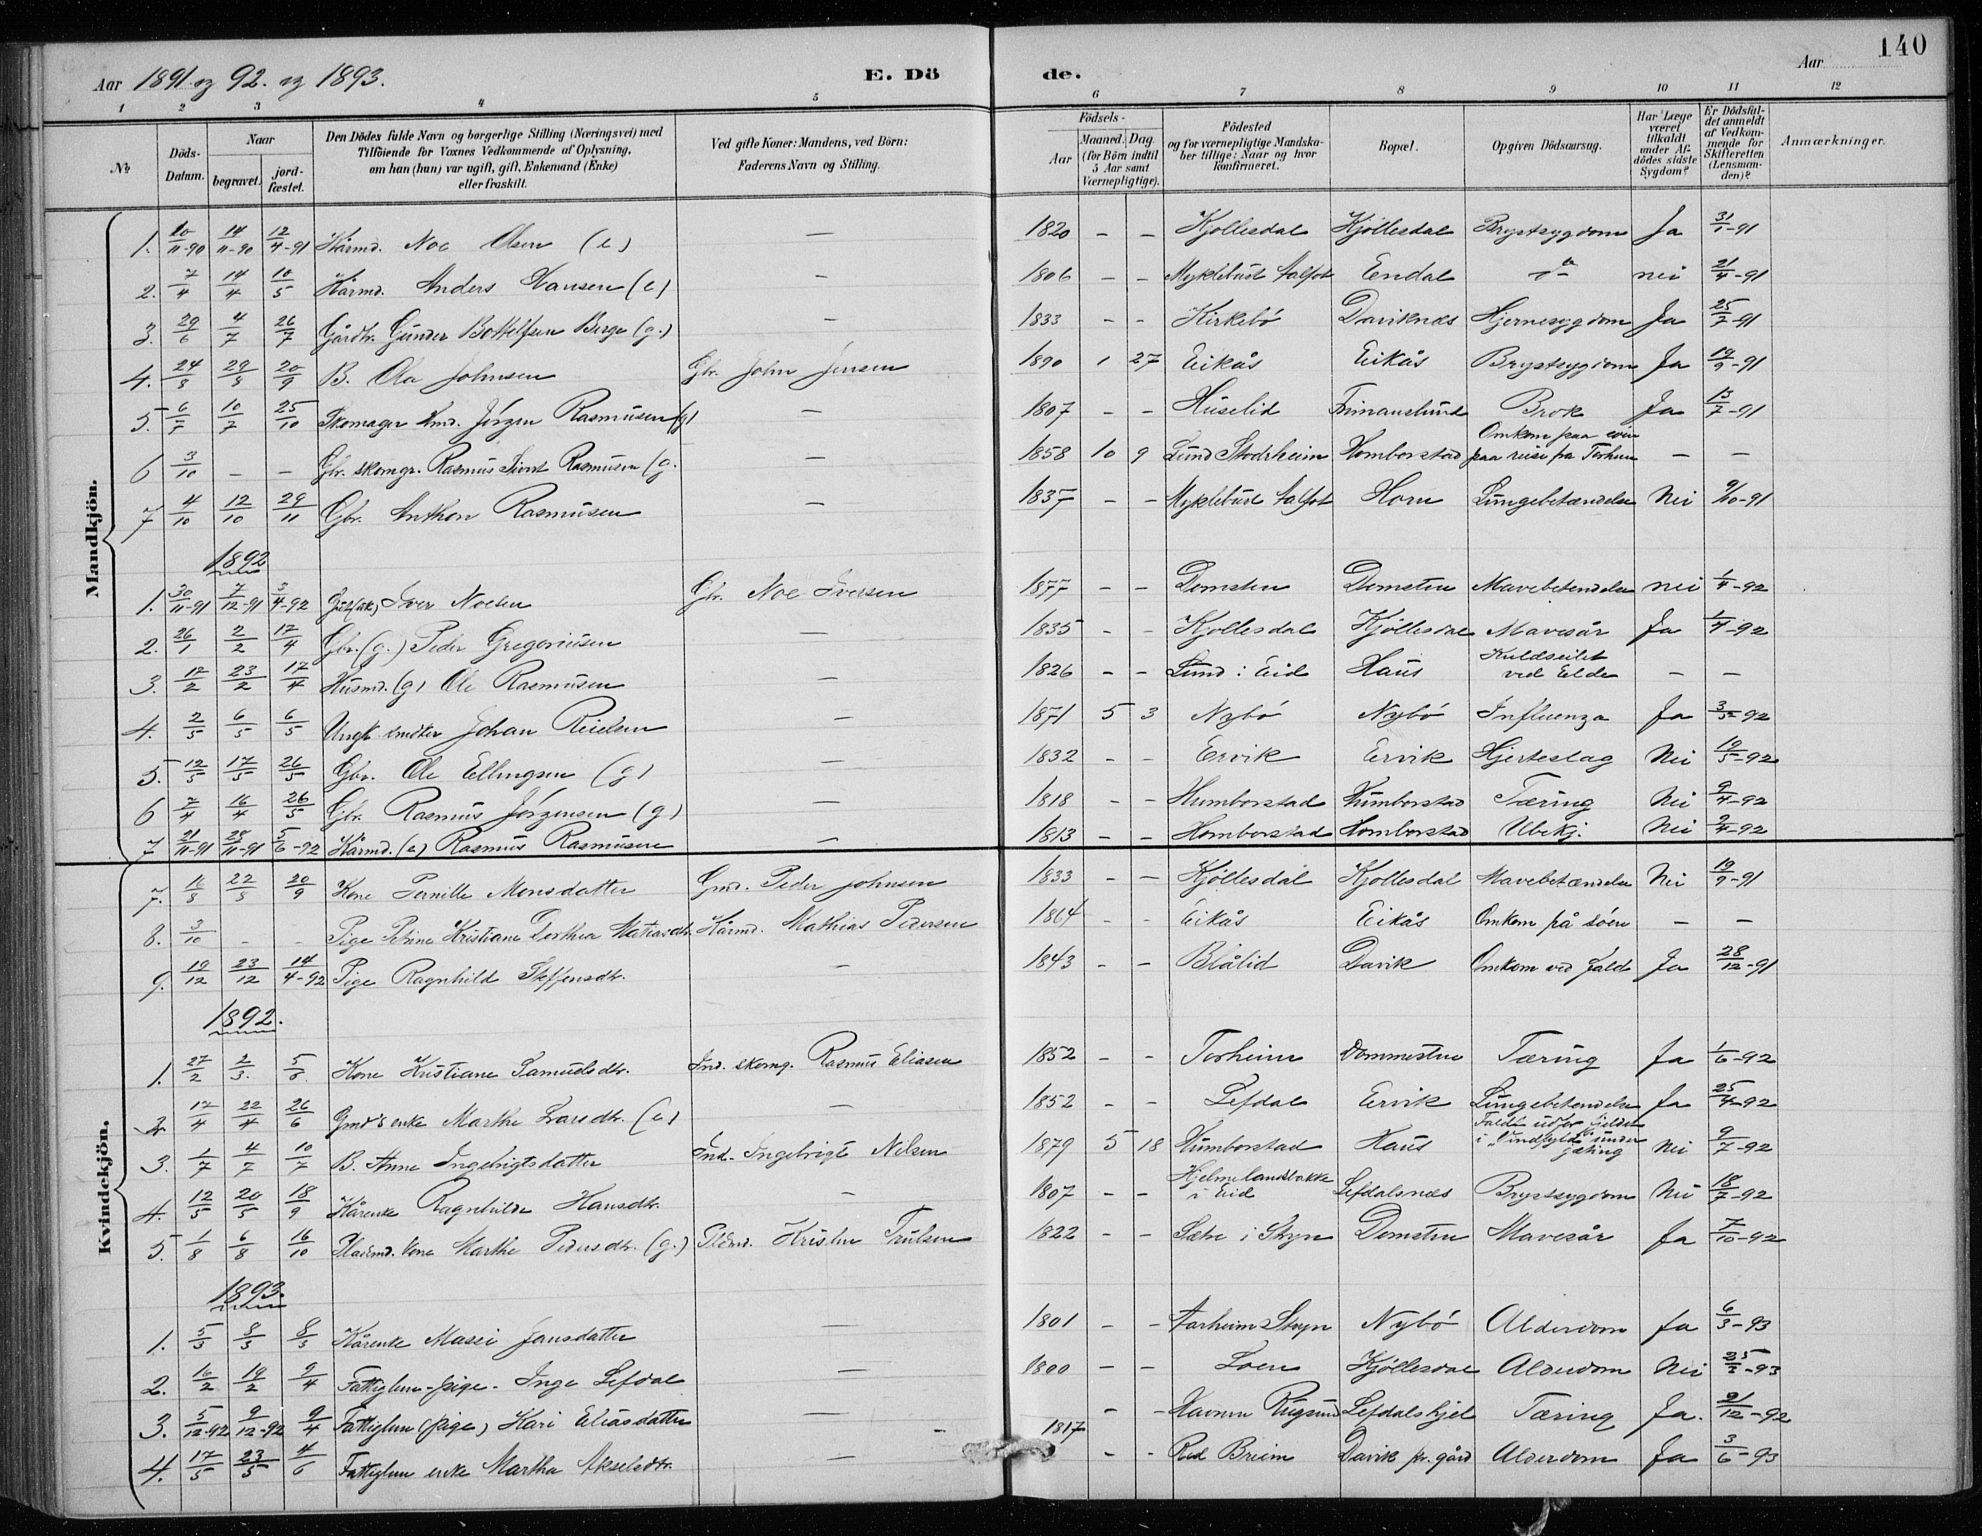 140
Aar 1891 og 92. og 1893. E. Dö de. Aar
1 2 3 4 5 6 7 8 9 10 11 12
No
Döds-Datum.
Naar
begravet.
jordfæstet.
Den Dödes fulde Navn og borgerlige Stilling (Næringsvei) med
Tilföiende for Voxnes Vedkommende af Oplysning,
om han (hun) var ugift, gift, Enkemand (Enke)
eller fraskilt.
Ved gifte Koner: Mandens, ved Börn:
Faderens Navn og Stilling.
Födsels-
Aar
Maaned. Dag.
(for Börn indtil
5 Aar samt
Værnepligtige).
Födested
og for værnepligtige Mandska-
ber tillige: Naar og hvor
konfirmeret.
Bopæl.
Opgiven Dödsaarsag.
Har Læge
været
tilkaldt
under Af-
dödes sidste
Sygdom?
Er Dödsfal-
det anmeldt
af Vedkom-
mende for
Skifteretten
(Lensman-
den)?
Anmærkninger.
Mandkjön.
1. 10/11-90 14/11-90 12/4-91 Kårmd. Noe Olsen (e) — 1820 - - Kjøllesdal Kjöllesdal Brystsygdom Ja 31/1-91
2. 7/4 14/4 10/5 Kårmd. Anders Hansen (e) — 1806 - - Myklebust Aalfot Endal do nei 21/4-91
3. 29/6 4/7 26/7 Gårdbr. Gunder Bottolfsen Berge (g.) — 1833 - - Kirkebö Daviknes Hjernesygdom Ja 25/7-91
4. 24/8 29/8 20/9 B. Ola Johnsen Gbr. John Jensen 1890 1 27 Eikås Eikås Brystsygdom Ja 19/9-91
5. 6/7 10/7 25/10 Skomager Jørgen Rasmusen (g) — 1807 - - Huselid Brok Ja 15/7-91
6 3/10 - - Gbr. skomgr. Rasmus Sivert Rasmusen (g. — 1858 10 9 Lund Stodrheim Homborstad Omkom paa søen paa reise fra Torheim — —
7 4/10 12/10 29/11 Gbr. Anthon Rasmusen — 1837 - - Myklebust Aalfot Horn Lungebetændelse Nei 9/10-91
1892
1. 30/11-91 7/12-91 3/4-92 Iver Noesen Gbr. Noe Iversen 1877 - - Domsten Domsten Mavebetendelse nei 1/4-92
2. 26/1 2/2 17/4 Gbr. (g.) Peder Gregoriusen — 1835 - - Kjøllesdal Kjöllesdal Mavesår Ja 1/4-92
3. 12/2 23/2 17/4 Husmd. (g) Ole Rasmusen — 1826 - - Lund i Eid Haus Kuldseilet ved Elde — —
4. 2/5 6/5 6/5 Ungk. Johan Reielsen — 1871 5 3 Nybö Nybö Influenza Ja 3/5-92
5. 12/5 17/5 26/5 Gbr. Ole Ellingsen (g) — 1832 - - Ervik Ervik Hjerteslag Nei 19/5-92
6 7/4 16/4 26/5 Gbr. Rasmus Jørgensen (g) — 1818 - - Humborstad Humborstad Tæring Nei 9/4-92
7 21/11-91 28/11-91 5/6-92 Kårmd. (e) Rasmus Rasmusen — 1813 - - Homborstad Homborstad Ubekj. Nei 9/4-92
Kvindekjön.
7. 16/8 22/8 20/9 Kone Pernille Monsdatter Gmd. Peder Johnsen 1833 - - Kjöllesdal Kjöllesdal Mavebetændelse Nei 19/9-91
8. 3/10 - - Pige Petrine Kristiane Dorthea Matiasdtr. Kårmd. Mathias Pedersen 1864 - - Eikås Eikås Omkom på søen — —
9. 19/12 23/12 14/4-92 Pige Ragnhild Steffensdtr. — 1843 - - Blålid Davik Omkom ved fald Ja 28/12-91
1892.
1. 27/2 2/3. 5/6 Kone Kristiane Samuelsdtr. Ind. skomg. Rasmus Eliasen 1852 - - Torheim Dommesten Tæring Ja 1/6-92
2. 17/4 22/4 26/6 Gmd's enke Marthe Larsdtr. (e) — 1852 - - Lefdal Ervik Lungebetendelse Ja 25/4-92
3. 1/7 4/7 10/7 B. Anne Ingebrigtsdatter Ind. Ingebrigt Nilsen 1879 5 18 Humborstad Haus Faldt udfor fjeldet i under gjæting Nei 9/7-92
4. 12/5 20/5 18/9 Kårenke Ragnhilde Hansdtr. — 1807 - - Hjelmelandsbakke i Eid Lefdalsnes Brystsygdom Nei 18/7-92
5. 1/8 6/8 16/10 Pladsmd. kone Marthe Pedersdtr. (g.) Pldsmd. Kristen Trulsen 1822 - - Sætre i Stryn Domsten Mavesår Ja 7/10-92
1893.
1. 5/3 8/3 8/3 Kårenke Masei Jansdatter — 1801 - - Aarheim Stryn Nybö Alderdom Ja 6/3-93
2. 16/2 19/2 9/4 Fattiglem-pige. Inge Lefdal — 1800 - - Loen Kjöllesdal Alderdom Nei 25/2-93
3. 5/12-92 9/12-92 9/4 Fattiglem (pige) Kari Eliasdatter - 1817 - - Havnen Rugsund Lefdalskjel Tæring Ja. 21/12-92
4. 17/5 23/5 4/6 Fattiglem enke Martha Akselsdtr. — - - Red Breim Davik pr.gård Alderdom Ja 3/6-93